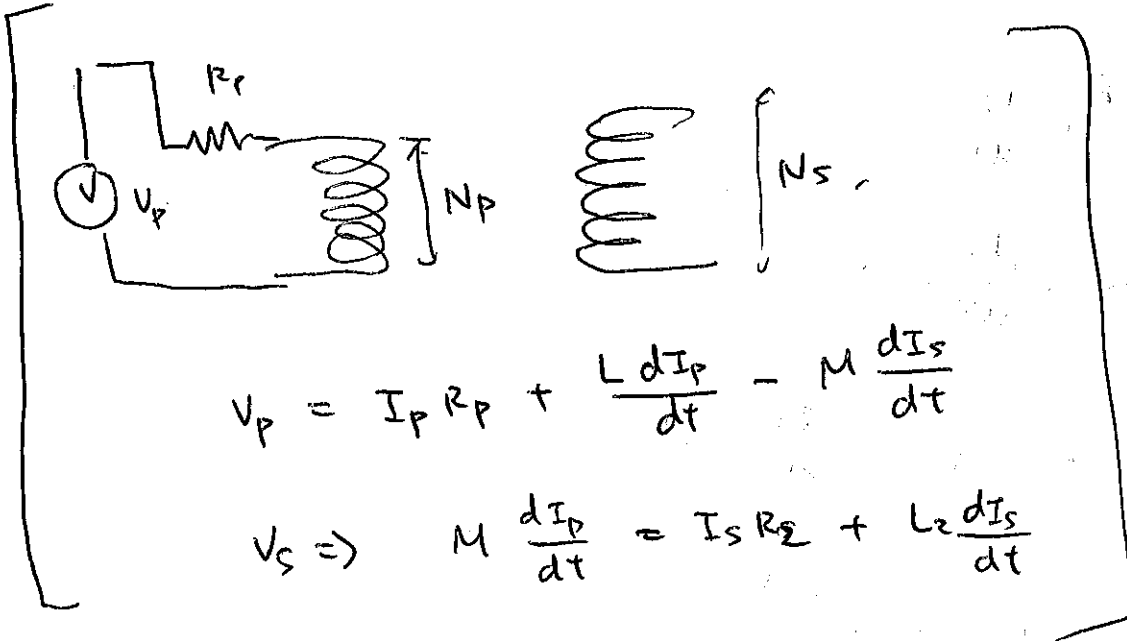 Rp
V Vp Np Ns
Vp = Ip Rp + L dIp/dt - M dIs/dt
Vs => M dIp/dt = Is R2 + L2 dIs/dt